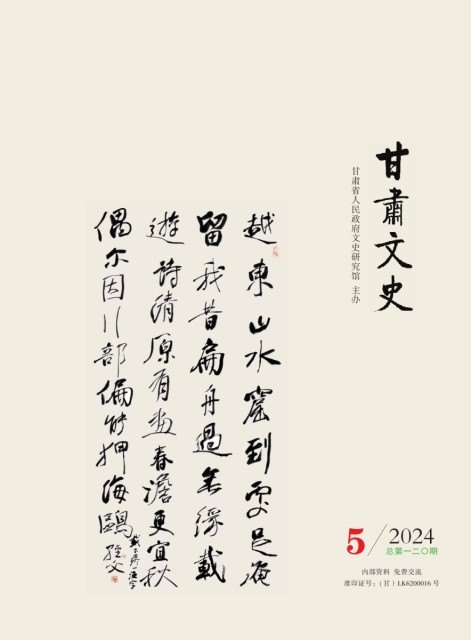 甘肅文史
甘肃省人民政府文史研究馆 主办
越東山水窟到處足淹
留我昔扁舟過無緣載
遊詩情原有畫春澹更宜秋
偶尔因川部偏能押海鷗
5/2024
总第一二〇期
内部资料 免费交流
准印证号：（甘）LK6200016号